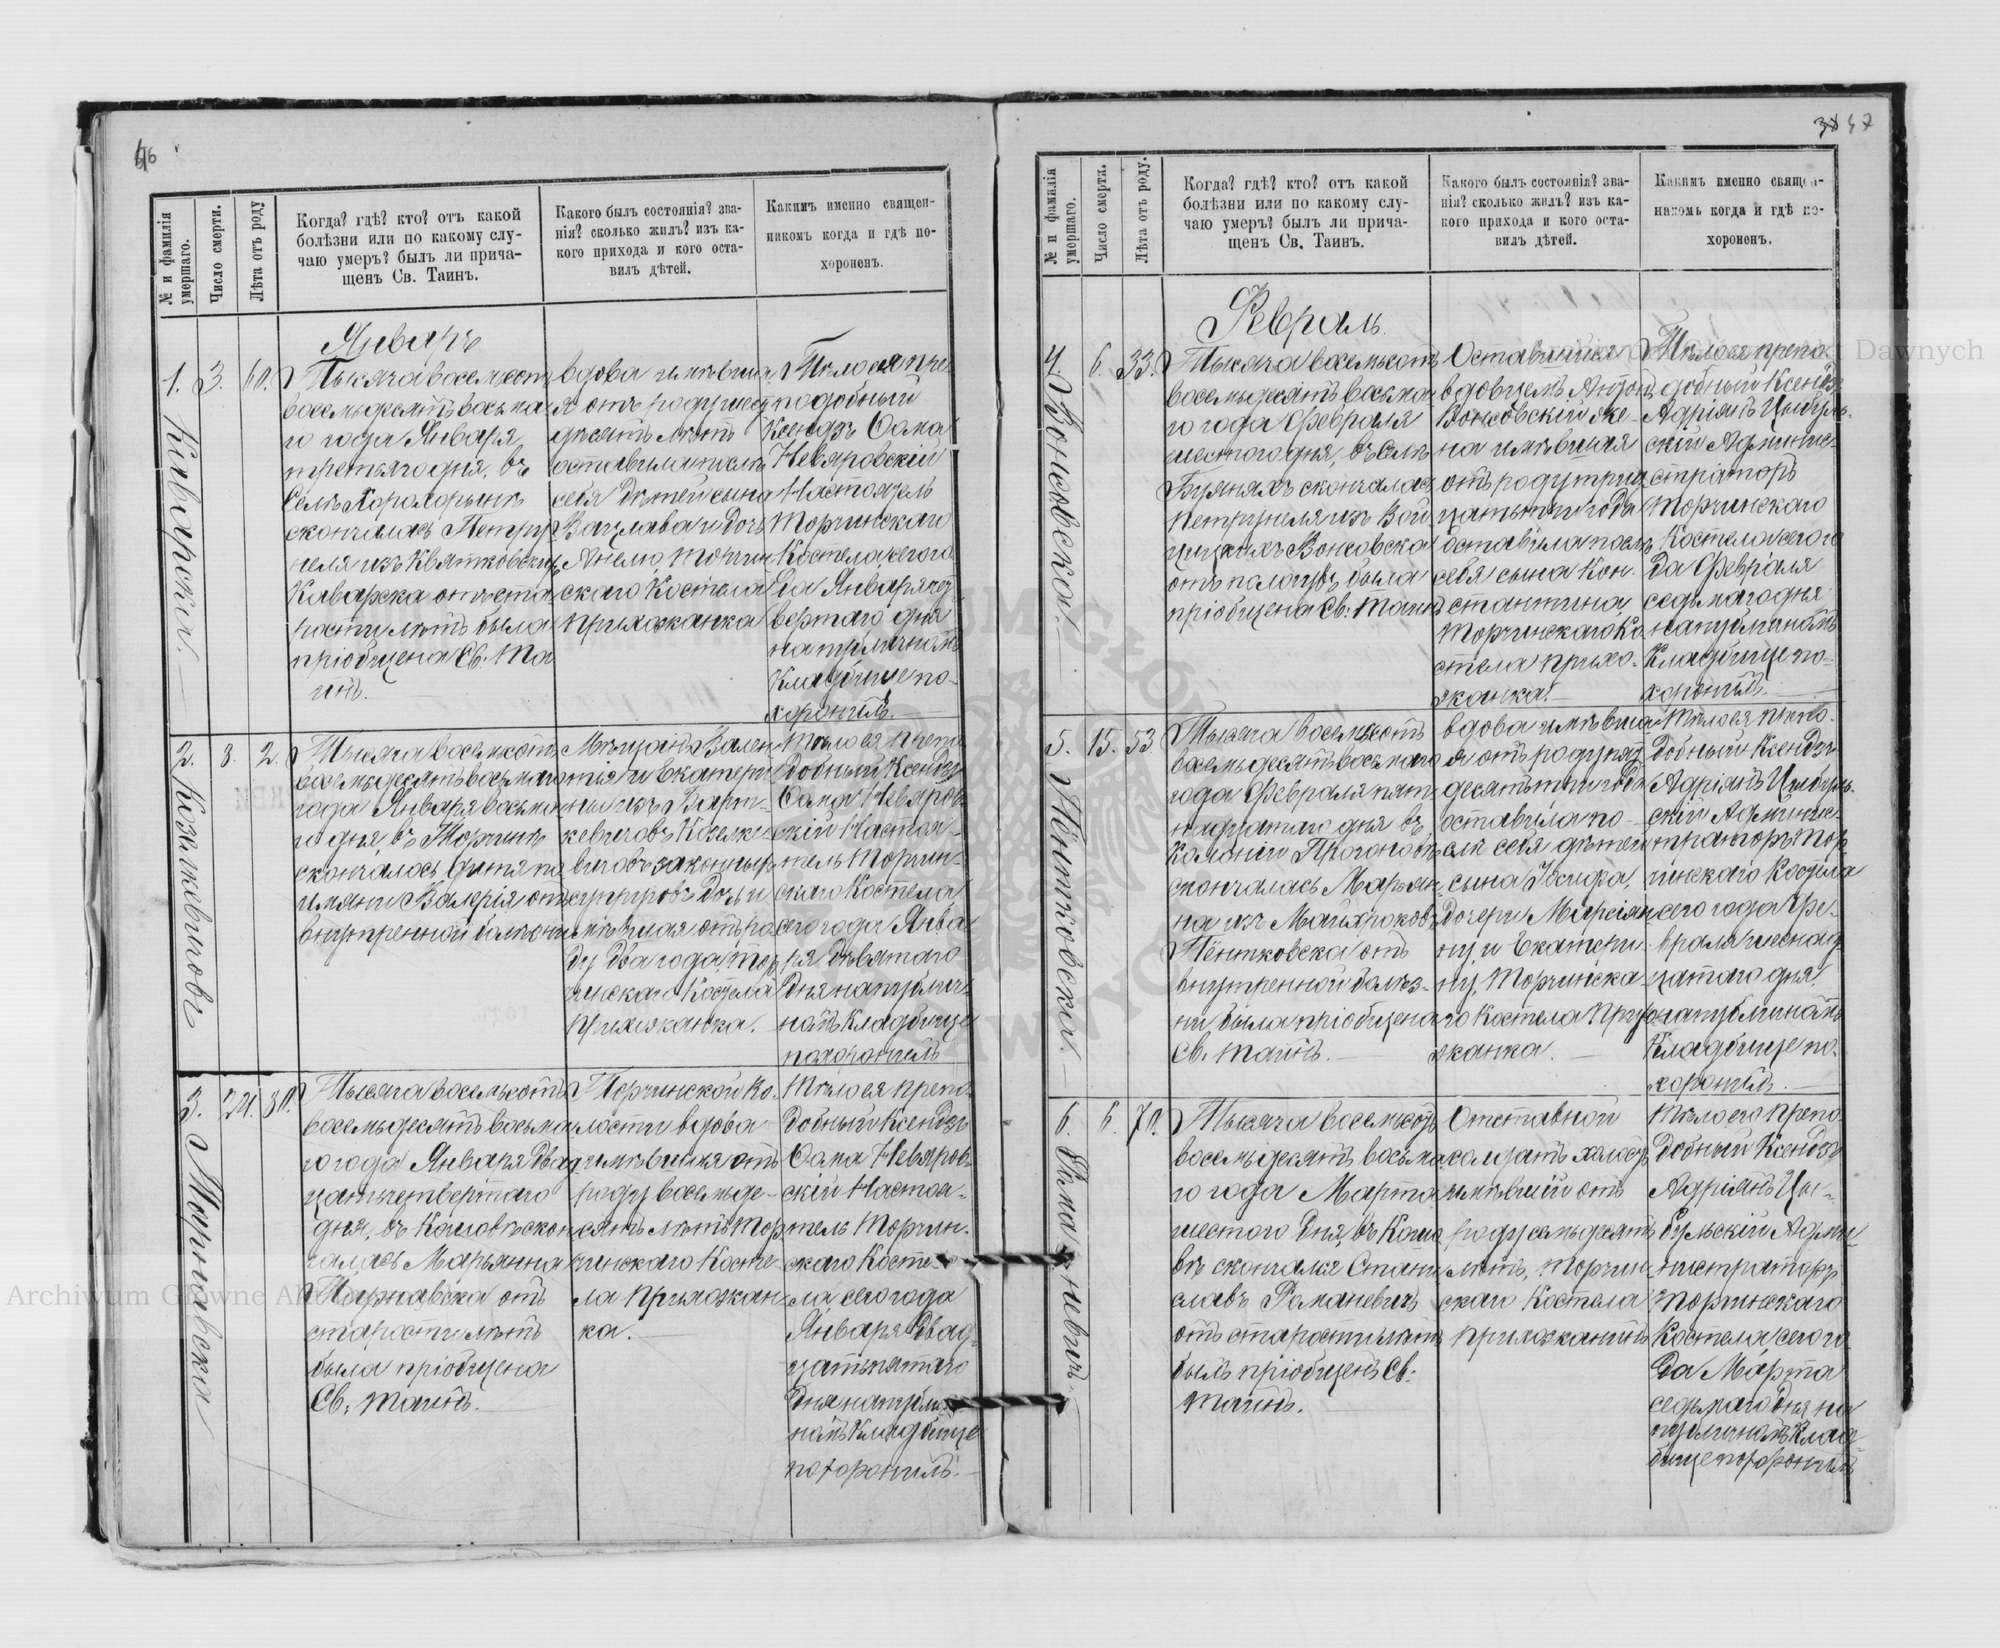 46
№ и фамилія умершаго.
Число смерти.
Лѣта отъ роду
Когда? гдѣ? кто? отъ какой
болѣзни или по какому слу-
чаю умеръ? былъ ли прича-
щенъ Св. Таинъ.
Какого былъ состоянія? зва-
нія? сколько жилъ? изъ ка-
кого прихода и кого оста-
вилъ дѣтей.
Какимъ именно священ-
никомъ когда и гдѣ по-
хороненъ.
Январь
1. Каварска.
3.
60.
Тысяча восемьсотъ
восемьдесятъ восьма
го года Января
третьяго дня, въ
скончалась Петру
неля изъ Квятковскихъ
Каварска отъ ста
рости лѣтъ была
пріобщена Св: Та
инъ.
вдова имѣвша
я отъ роду шест
десятъ лѣтъ
оставила послѣ
себя дѣтей сына
Вацлава и дочь
Анелю, Торчин
скаго Костела
прихожанка
Тѣло ея пре
подобный
Ксендзъ Ѳома
Невяровскій
Настоятель
Торчинскаго
Костела, сего го
да Января чет
вертаго дня
на публичномъ
кладбище по-
хоронилъ.
2.
8.
2.
Тысяча восемьсотъ
восемьдесятъ восьмаго
года Января восьма
го дня, въ Торчинѣ
скончалось дитя по
имяни Валерія отъ
внутренной болѣзни
Мѣщанъ Вален
тія и Екатери
ны изъ Барт-
кевичовъ Козелке-
вичовъ законныхъ
супруговъ дочь и
мѣвшая отъ ро
ду два года, Тор
чинскаго Костела
прихожанка.
Тѣло ея препо
добный Ксендзъ
Ѳома Невяров
скій Настоя-
тель Торчин-
скаго Костела
сего года Янва
ря девятаго
дня на публич
номъ кладбище
похоронилъ
3.
24.
80.
Тысяча восемьсотъ
восемьдесятъ восьма
го года Января двад
цать четвертаго
дня, въ
чалась Марьянна
отъ
старости лѣтъ
была пріобщена
Св: Таинъ.
Торчинской во-
лости вдова
имѣвшая отъ
роду восемьде-
сятъ лѣтъ Тор
чинскаго Косте-
ла прихожан-
ка.
Тѣло ея препо
добный Ксендзъ
Ѳома Невяров
скій Настоя-
тель Торчин-
скаго Косте-
ла сего года
Января двад-
цать пятаго
дня на публич
номъ кладбище
похоронилъ.
38 47
№ и фамилія умершаго.
Число смерти.
Лѣта отъ роду.
Когда? гдѣ? кто? отъ какой
болѣзни или по какому слу-
чаю умеръ? былъ ли прича-
щенъ Св. Таинъ.
Какого былъ состоянія? зва-
нія? сколько жилъ? изъ ка-
кого прихода и кого оста-
вилъ дѣтей.
Какимъ именно священ-
никомъ когда и гдѣ по-
хороненъ.
Февраль.
4. Вонсовска.
6.
33.
Тысяча восемьсотъ
восемьдесятъ восьма
го года Февраля
шестого дня, въ Селѣ
Буяняхъ скончалась
Петрунеля изъ Вой
Вонсовска
отъ была
пріобщена Св: Таинъ
Оставшися
вдовцемъ Антонъ
Вонсовскій же-
на имѣвшая
отъ роду трид
цать три года
оставила послѣ
себя сына Кон-
стантина,
Торчинскаго Ко
стела прихо-
жанка.
Тѣло ея препо
добный Ксендзъ
Адріянъ Цыбуль-
скій Админис-
траторъ
Торчинскаго
Костела сего го
да Февраля
седьмаго дня
на публичномъ
Кладбище по-
хоронилъ.
5. Пентковска.
15.
53
Тысяча восемьсотъ
восемьдесятъ восьмаго
года Февраля пят
надцатаго дня въ
Колоніи
скончалась Марьян
на изъ
Пентковска отъ
внутренной болѣз-
ни была пріобщена
Св. Таинъ.
вдова имѣвша
я отъ роду пят
десятъ три года
оставила по-
слѣ себя дѣтей
сына Іосифа,
дочери Марсіян
ну и Екатери
ну, Торчинска-
го Костела прихо
жанка.
Тѣло ея препо-
добный Ксендзъ
Адріянъ Цыбуль-
скій Админис-
траторъ Тор
чинскаго Костела
сего года Фе-
враля шеснад
цатаго дня
на публичномъ
Кладбище по-
хоронилъ.
6. Романевичъ.
6.
70.
Тысяча восемьсотъ
восемьдесятъ восьма
го года Марта
шестого дня, въ
скончался Стани
славъ Романевичъ
отъ старости лѣтъ
былъ пріобщенъ Св:
Таинъ.
Отставной
солдатъ холостъ
имѣвшій отъ
роду семьдесятъ
лѣтъ, Торчин-
скаго Костела
прихожанинъ
Тѣло его препо
добный Ксендзъ
Адріянъ Цы-
бульскій Адми
нистраторъ
Торчинскаго
Костела сего го
да Марта
седьмаго дня на
публичномъ клад
бище похоронилъ